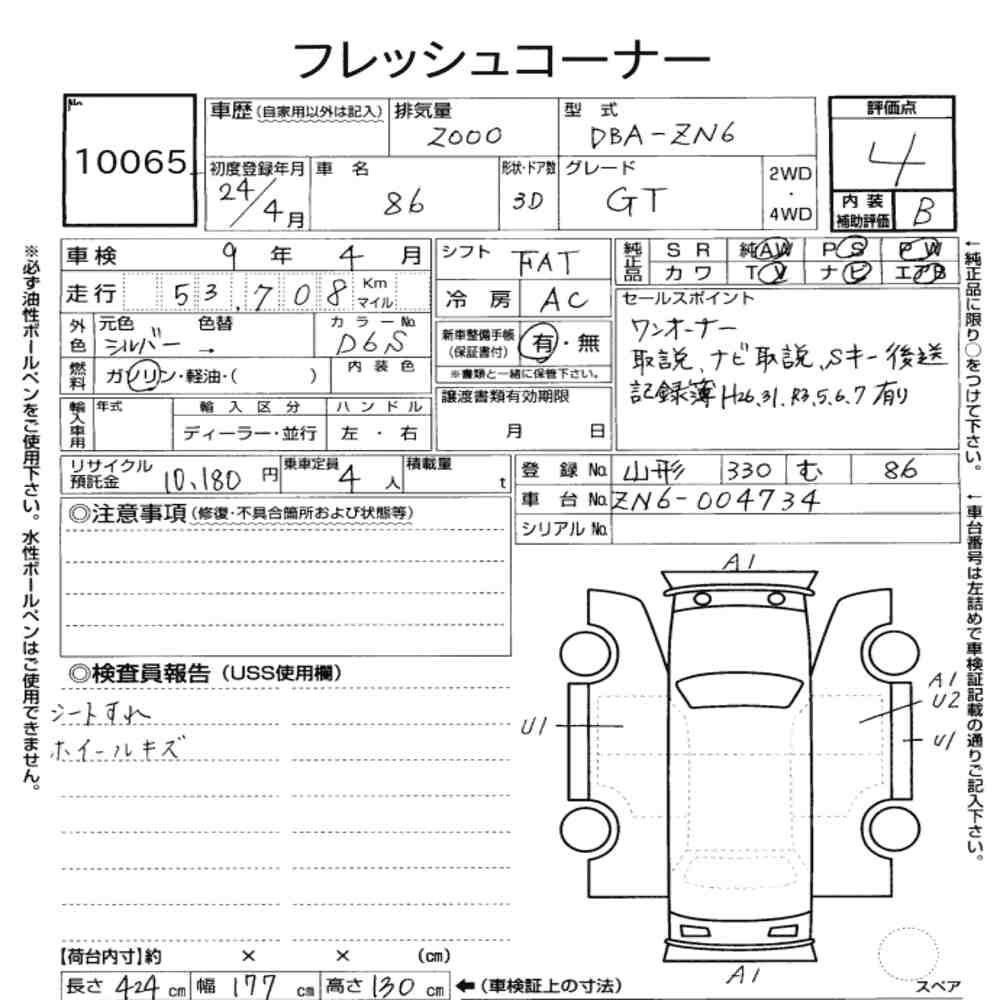 フレッシュコーナー
No.
10065
車歴 (自家用以外は記入)
排気量
2000
型式
DBA-ZN6
評価点
4
初度登録年月
24/4月
車名
86
形状・ドア数
3D
グレード
GT
2WD
・
4WD
内装
補助評価
B
車検 9年 4月
走行 53,708 Km
マイル
外色
元色
シルバー
色替
→
カラーNo.
D6S
燃料
ガソリン・軽油・( )
内装色
輸入車用
年式
輸入区分
ディーラー・並行
ハンドル
左・右
シフト
FAT
冷房
AC
新車整備手帳
(保証書付)
有・無
※書類と一緒に保管下さい。
譲渡書類有効期限
月 日
純正品
SR 純AW PS PW
カワ TV ナビ エアB
セールスポイント
ワンオーナー
取説、ナビ取説、Sキー後送
記録簿H26.31.R3.5.6.7有り
リサイクル
預託金
10,180円
乗車定員
4人
積載量
t
登録No. 山形 330 む 86
車台No. ZN6-004734
シリアルNo.
◎注意事項 (修復・不具合箇所および状態等)
◎検査員報告 (USS使用欄)
シートすれ
ホイールキズ
A1
U1
A1
U2
U1
A1
スペア
【荷台内寸】約 × × (cm)
長さ 424 cm 幅 177 cm 高さ 130 cm ←(車検証上の寸法)
※必ず油性ボールペンをご使用下さい。水性ボールペンはご使用できません。
←純正品に限り○をつけて下さい。
←車台番号は左詰めで車検証記載の通りご記入下さい。